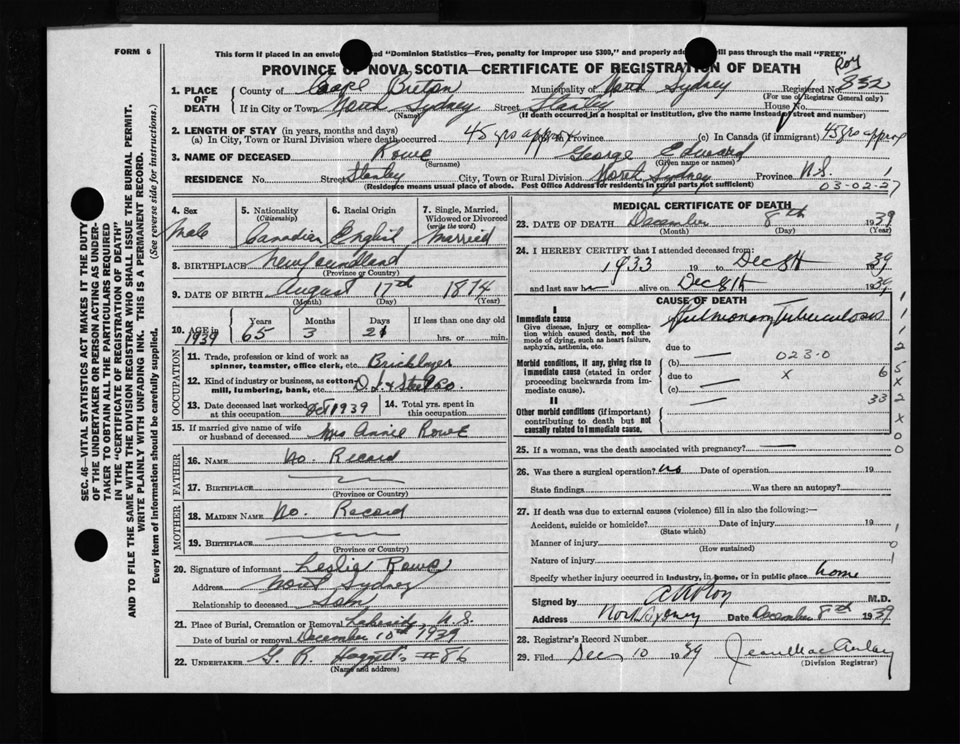 FORM 6
This form if placed in an envelo d "Dominion Statistics—Free, penalty for improper use $300," and properly add ill pass through the mail "FREE"
PROVINCE OF NOVA SCOTIA—CERTIFICATE OF REGISTRATION OF DEATH
1. PLACE OF DEATH County of Cape Breton Municipality of North Sydney Registered No. 332
(For use of Registrar General only)
If in City or Town North Sydney Street Stanley House No.
(Name) (If death occurred in a hospital or institution, give the name instead of street and number)
2. LENGTH OF STAY (in years, months and days)
(a) In City, Town or Rural Division where death occurred 45 yrs approx In Province (c) In Canada (if immigrant) 45 yrs approx
3. NAME OF DECEASED Rowe George Edward
(Surname) (Given name or names)
RESIDENCE No. Street Stanley City, Town or Rural Division North Sydney Province N.S.
(Residence means usual place of abode. Post Office Address for residents in rural parts not sufficient) 03-02-27
4. Sex Male
5. Nationality (Citizenship) Canadian
6. Racial Origin English
7. Single, Married, Widowed or Divorced (write the word) Married
8. BIRTHPLACE Newfoundland
(Province or Country)
9. DATE OF BIRTH August 17th 1874
(Month) (Day) (Year)
10. AGE in 1939 Years 65 Months 3 Days 21 If less than one day old hrs. or min.
OCCUPATION
11. Trade, profession or kind of work as spinner, teamster, office clerk, etc. Bricklayer
12. Kind of industry or business, as cotton mill, lumbering, bank, etc.
13. Date deceased last worked at this occupation Oct 1939
14. Total yrs. spent in this occupation
15. If married give name of wife or husband of deceased Mrs Annie Rowe
FATHER
16. NAME No. Record
17. BIRTHPLACE
(Province or Country)
MOTHER
18. MAIDEN NAME No. Record
19. BIRTHPLACE
(Province or Country)
20. Signature of informant Leslie Rowe
Address North Sydney
Relationship to deceased Son
21. Place of Burial, Cremation or Removal Lakeside, N.S.
Date of burial or removal December 10th 1939
22. UNDERTAKER G. R. #86
(Name and address)
MEDICAL CERTIFICATE OF DEATH
23. DATE OF DEATH December 8th 1939
(Month) (Day) (Year)
24. I HEREBY CERTIFY that I attended deceased from:
1933 19 to Dec 8th 1939
and last saw h alive on Dec 8th 1939
CAUSE OF DEATH
I
Immediate cause Pulmonary Tuberculosis
Give disease, injury or complication which caused death, not the mode of dying, such as heart failure, asphyxia, asthenia, etc.
due to
Morbid conditions, if any, giving rise to immediate cause (stated in order proceeding backwards from immediate cause)
(b) 023-0
due to X 6
(c) 33
II
Other morbid conditions (if important) contributing to death but not causally related to immediate cause.
25. If a woman, was the death associated with pregnancy?
26. Was there a surgical operation? no Date of operation 19
State findings Was there an autopsy?
27. If death was due to external causes (violence) fill in also the following:—
Accident, suicide or homicide? Date of injury 19
(State which)
Manner of injury
(How sustained)
Nature of injury
Specify whether injury occurred in industry, in home, or in public place home
Signed by M.D.
Address North Sydney Date December 8th 1939
28. Registrar's Record Number
29. Filed Dec 10 1939 Jean MacAulay
(Division Registrar)
SEC. 46—VITAL STATISTICS ACT MAKES IT THE DUTY
OF THE UNDERTAKER OR PERSON ACTING AS UNDER-
TAKER TO OBTAIN ALL THE PARTICULARS REQUIRED
IN THE "CERTIFICATE OF REGISTRATION OF DEATH"
AND TO FILE THE SAME WITH THE DIVISION REGISTRAR WHO SHALL ISSUE THE BURIAL PERMIT.
WRITE PLAINLY WITH UNFADING INK. THIS IS A PERMANENT RECORD.
Every item of Information should be carefully supplied. (See reverse side for instructions.)